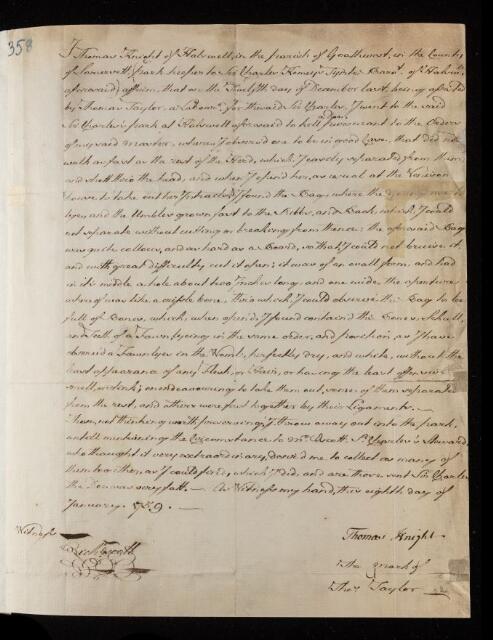 358
I Thomas Knight of Halswell, in the parish of Goathurst, in the County
of Somersett, park keeper to Sir Charles Kemeys Tynte Barrt. of Halswell
aforesaid, affirm, that on the Twelfth day of December last, being assisted
by Thomas Taylor, a Labourer, for the said Sr. Charles, I went to the said
Sir Charles's park at Halswell aforesaid to kill a Doe, pursuant to the Orders
of my said Master, where I observed one to be in good Case, that did not
walk so fast as the rest of the Herd, which I easily separated from them
and shott thro' the head, and when I opened her, as is usual at the Venison
house to take out her Entrails, I found the Bag, where the young one
lyes, and the Umbles grown fast to the Ribbs, and Back, which I could
not separate without cutting or breaking from thence: the aforesaid Bag
was quite callous, and as hard as a Board, so that I could not open it,
and with great difficulty cut it open; it was of an ovall form, and had
in it's middle a hole about two Inches long, and one wide, the aperture
where of was like a cripple bone, thro' which I could observe the Bag to be
full of Bones, which, when opened, I found contain'd the Bones, Skull,
and Teeth of a Fawn lyeing in the same order, and position, as I have
observed a Fawn lyes in the Womb, perfectly dry, and white, without the
least appearance of any Flesh, or Skin, or having the least offensive
smell, or stink; on endeavouring to take them out, some of them separated
from the rest, and others were fast together by their Ligaments. —
These, not thinking worth preserving, I threw away out into the park,
untill mentioning the Circumstance to Mr. Escott Sr. Charles's Steward,
who thought it very extraordinary, desired me to collect as many of
them together as I could find, which I did, and are those sent Sir Charles
the Doe was very fatt. — As Witness my hand, this eighth day of
January. 1759. —
Witness
Thomas Knight
The mark of
Thos. Taylor